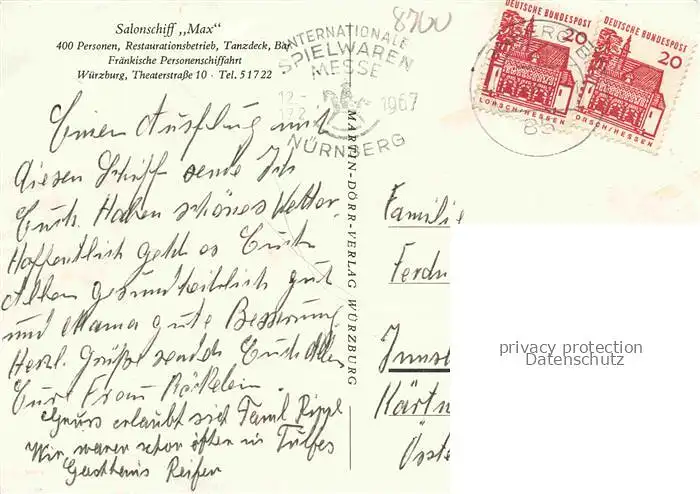 Salonschiff „Max"
400 Personen, Restaurationsbetrieb, Tanzdeck, Bar
Fränkische Personenschiffahrt
Würzburg, Theaterstraße 10 · Tel. 5 17 22
8700
INTERNATIONALE
SPIELWAREN
MESSE
12.-
17.2. 1967
NÜRNBERG
85
DEUTSCHE BUNDESPOST
20
LORSCH/HESSEN
DEUTSCHE BUNDESPOST
20
LORSCH/HESSEN
MARTIN-DÖRR-VERLAG WÜRZBURG
Einen Ausflug mit
diesen Schiff sende Ich
Euch. Haben schönes Wetter
Hoffentlich geht es Euch
Allen gesundheitlich gut
und Mama gute Besserung
Herzl. Grüße sendet Euch Allen
Eure Frau
Gruss erlaubt sich Faml. Rippl
Wir waren schon öfters in
Gasthaus Reifen
Familie
Ferdin
Innsb
Kärtn
Öste
privacy protection
Datenschutz